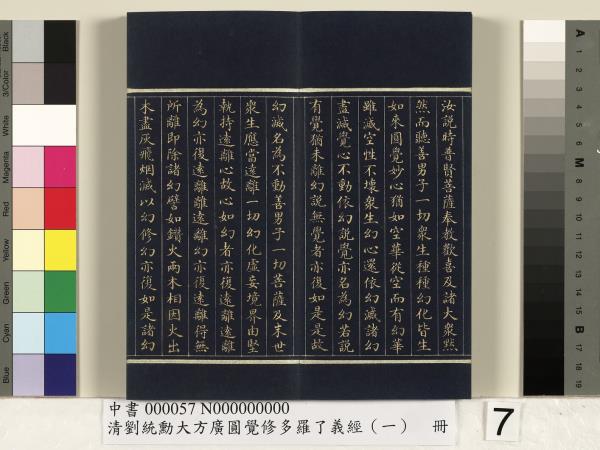 汝說時普賢菩薩奉教歡喜及諸大衆默
然而聽善男子一切衆生種種幻化皆生
如來圓覺妙心猶如空華從空而有幻華
雖滅空性不壞衆生幻心還依幻滅諸幻
盡滅覺心不動依幻說覺亦名為幻若說
有覺猶未離幻說無覺者亦復如是是故
幻滅名為不動善男子一切菩薩及末世
衆生應當遠離一切幻化虛妄境界由堅
執持遠離心故心如幻者亦復遠離遠離
為幻亦復遠離離遠離幻亦復遠離得無
所離即除諸幻譬如鑽火兩木相因火出
木盡灰飛烟滅以幻修幻亦復如是諸幻
Black
3/Color
White
Magenta
Red
Yellow
Green
Cyan
Blue
A
1
2
3
4
5
6
M
8
9
10
11
12
13
14
15
B
17
18
19
中書 000057 N000000000
清劉統勳大方廣圓覺修多羅了義經（一） 冊
7